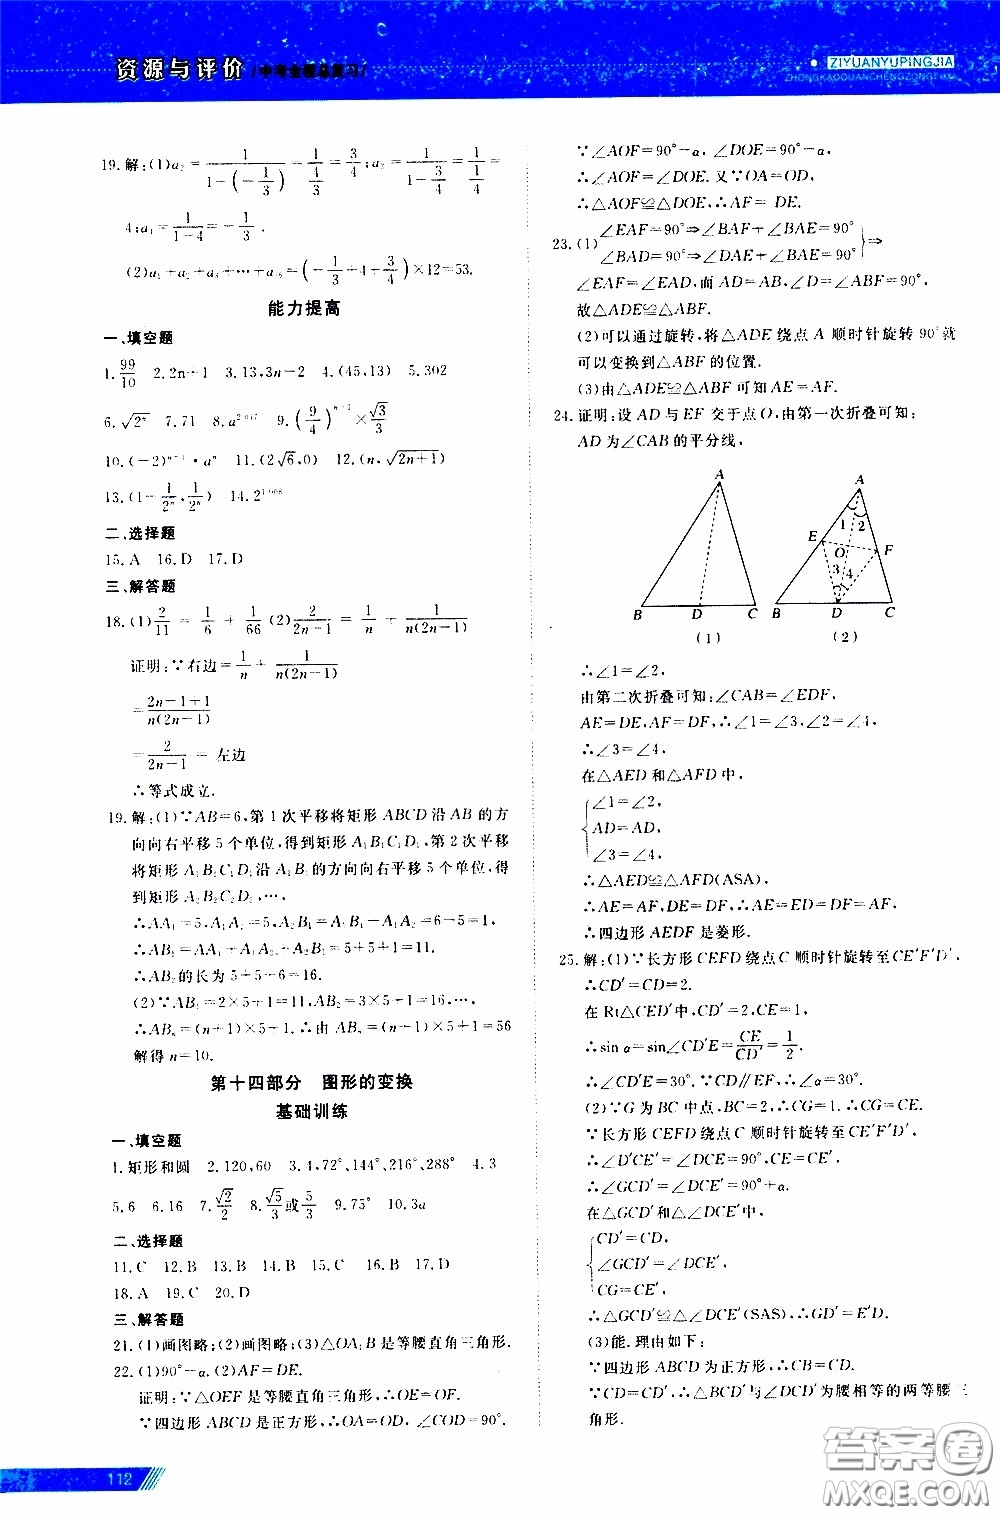 资源与评价 /中考全程总复习/
ZIYUANYUPINGJIA
ZHONGKAOQUANCHENGZONGFUXI
19.解:(1)a₂=1/(1-(-1/3))=1/(4/3)=3/4;a₃=1/(1-3/4)=1/(1/4)=
4;a₄=1/(1-4)=-1/3.
(2)a₁+a₂+a₃+…+a₃₆=(-1/3+4+3/4)×12=53.
能力提高
一、填空题
1.99/10 2.2n-1 3.13,3n-2 4.(45,13) 5.302
6.√2ⁿ 7.71 8.a²⁰¹⁷ 9.(9/4)ⁿ⁻¹×√3/4
10.(-2)ⁿ⁻¹·aⁿ 11.(2√6,0) 12.(n,√(2n+1))
13.(1-1/2ⁿ,1/2ⁿ) 14.2¹⁰⁰⁸
二、选择题
15.A 16.D 17.D
三、解答题
18.(1)2/11=1/6+1/66 (2)2/(2n-1)=1/n+1/(n(2n-1))
证明:∵右边=1/n+1/(n(2n-1))
=(2n-1+1)/(n(2n-1))
=2/(2n-1)=左边
∴等式成立.
19.解:(1)∵AB=6,第1次平移将矩形ABCD沿AB的方
向向右平移5个单位,得到矩形A₁B₁C₁D₁,第2次平移
将矩形A₁B₁C₁D₁沿A₁B₁的方向向右平移5个单位,得
到矩形A₂B₂C₂D₂,…,
∴AA₁=5,A₁A₂=5,A₂B₁=A₁B₁-A₁A₂=6-5=1,
∴AB₂=AA₁+A₁A₂+A₂B₂=5+5+6=16,
∴AB₂的长为5+5+6=16.
(2)∵AB₁=2×5+1=11,AB₂=3×5+1=16,…,
∴ABₙ=(n+1)×5+1;∴由(n+1)×5+1=56
解得n=10.
第十四部分 图形的变换
基础训练
一、填空题
1.矩形和圆 2.120,60 3.4,72°,144°,216°,288° 4.3
5.6 6.16 7.√2/2 8.√5/3或5/3 9.75° 10.3a
二、选择题
11.C 12.B 13.B 14.B 15.C 16.C 17.D
18.A 19.C 20.D
三、解答题
21.(1)画图略;(2)画图略;(3)△OA₁B是等腰直角三角形.
22.(1)90°-α.(2)AF=DE.
证明:∵△OEF是等腰直角三角形,∴OE=OF.
∵四边形ABCD是正方形,∴OA=OD,∠COD=90°.
∵∠AOF=90°-α,∠DOE=90°-α,
∴∠AOF=∠DOE.又∵OA=OD,
∴△AOF≌△DOE,∴AF=DE.
23.(1)∠EAF=90°⇒∠BAF+∠BAE=90°
∠BAD=90°⇒∠DAE+∠BAE=90°}⇒
∠EAF=∠EAD,而AD=AB,∠D=∠ABF=90°,
故△ADE≌△ABF.
(2)可以通过旋转,将△ADE绕点A顺时针旋转90°就
可以变换到△ABF的位置.
(3)由△ADE≌△ABF可知AE=AF.
24.证明:设AD与EF交于点O,由第一次折叠可知:
AD为∠CAB的平分线,
A B D C (1)
A E O F 1 2 3 4 B D C (2)
∴∠1=∠2,
由第二次折叠可知:∠CAB=∠EDF,
AE=DE,AF=DF,∴∠1=∠3,∠2=∠4,
∴∠3=∠4,
在△AED和△AFD中,
{∠1=∠2,
AD=AD,
∠3=∠4,
∴△AED≌△AFD(ASA),
∴AE=AF,DE=DF,∴AE=DE=DF=AF,
∴四边形AEDF是菱形.
25.解:(1)∵长方形CEFD绕点C顺时针旋转至CE′F′D′,
∴CD′=CD=2.
在Rt△CED′中,CD′=2,CE=1,
∴sin α=sin∠CD′E=CE/CD′=1/2,
∴∠CD′E=30°.∵CD∥EF,∴∠α=30°.
(2)∵G为BC中点,BC=2,∴CG=1.∴CG=CE.
∵长方形CEFD绕点C顺时针旋转至CE′F′D′,
∴∠D′CE′=∠DCE=90°,CE=CE′,
∴∠GCD′=∠DCE′=90°+α.
在△GCD′和△DCE′中,
{CD′=CD,
∠GCD′=∠DCE′,
CG=CE′,
∴△GCD′≌△DCE′(SAS),∴GD′=E′D.
(3)能.理由如下:
∵四边形ABCD为正方形,∴CB=CD.
∵CD=CD′,∴△BCD′与△DCD′为腰相等的两等腰三
角形.
112
答案圈
MXQE.COM